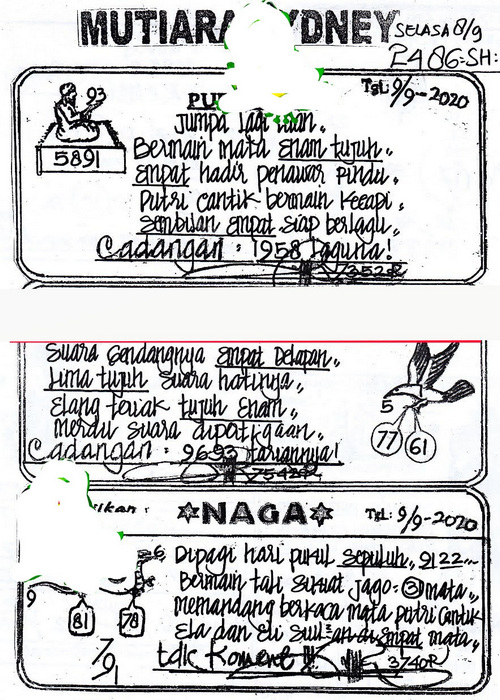 MUTIARA YDNEY
SELASA 8/9
2486=SH:
Tgl: 9/9-2020
PU
93
5891
Jumpa lagi
Bermain mata enam tujuh,,
Empat hadir penawar rindu,,
Putri cantik bermain kecapi,,
Sembilan empat siap berlagu,,
Cadangan : 1958 laguna!
7352R
Suara gendangnya empat Delapan,,
Lima tujuh suara hatinya,,
Elang tujuh enam,,
Merdu suara
Cadangan : 9693 tariannya!
7542R
5
77 61
ikan :
NAGA
Tgl: 9/9-2020
6
9
81 78
79
1
Dipagi hari pukul sepuluh,, 9122...
Bermain tali jago=3 mata,,
Memandang berkaca mata putri cantik
Ela dan Eli empat mata,,
tdk Koment !!!
3740R